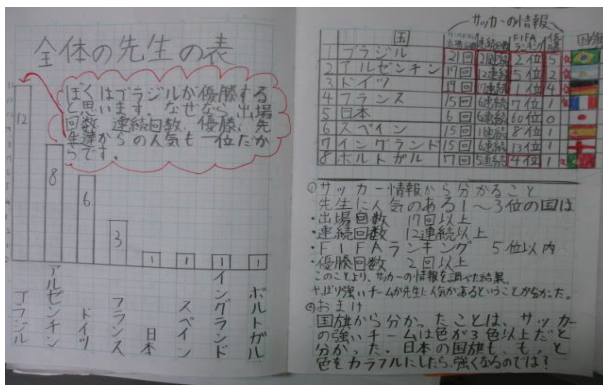 全体の先生の表
ぼくはブラジルが優勝する
と思います。なぜなら、出場
回数、連続回数、優勝、先
生達からの人気も一位だか
らです。
12
8
6
3
1
1
1
1
ブラジル
アルゼンチン
ドイツ
フランス
日本
スペイン
イングランド
ポルトガル
サッカーの情報
国
連続回数
FIFAランキング
優勝
国旗
1 ブラジル 21回 21連続 2位 5
2 アルゼンチン 17回 12連続 5位 2
3 ドイツ 19回 1位 4
4 フランス 15回 6連続 7位 1
5 日本 6回 6連続 60位 0
6 スペイン 15回 8位 1
7 イングランド 15回 6連続 13位 1
8 ポルトガル 7回 5連続 4位
①サッカー情報から分かること
先生に人気のある1〜3位の国は
・出場回数 17回以上
・連続回数 12連続以上
・FIFAランキング 5位以内
・優勝回数 2回以上
このことより、サッカーの情報を調べた結果、
やっぱり強いチームが先生に人気があるということが分かった。
②おまけ
国旗から分かったことは、サッカー
の強いチームは色が3色以上だと
分かった。日本の国旗も、もっと
色をカラフルにしたら強くなるのでは?